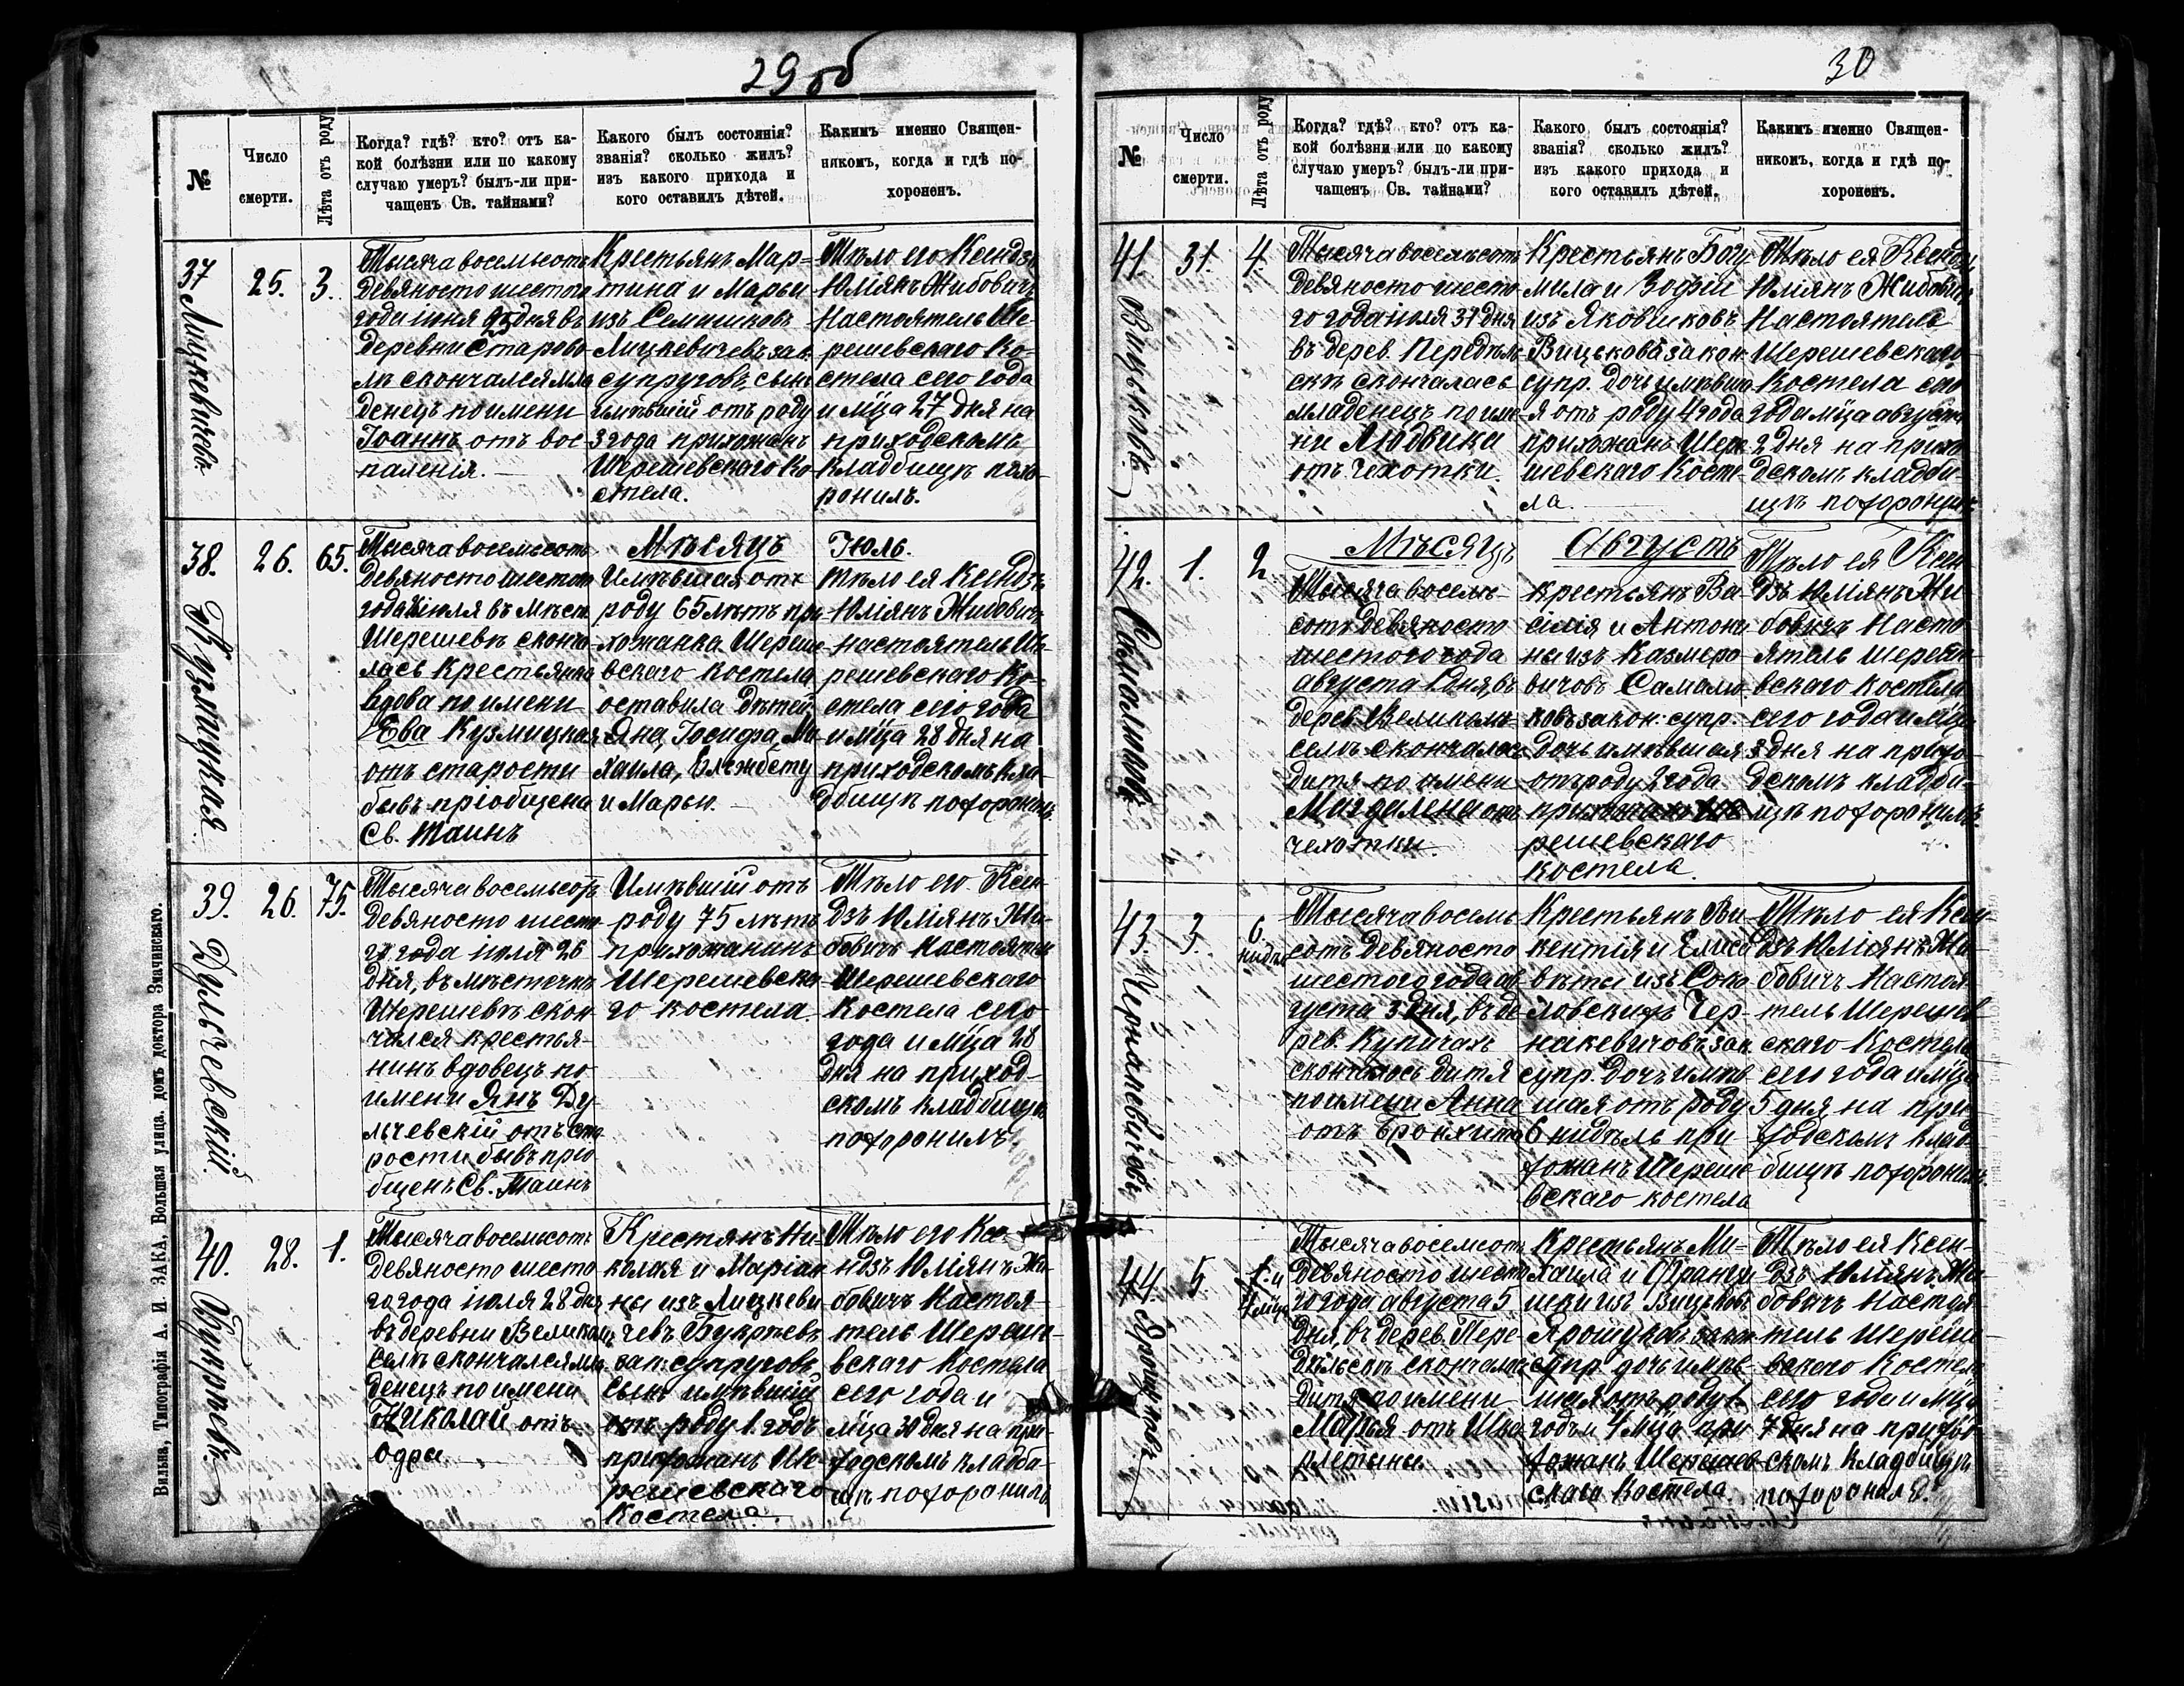 29 об
№
Число
смерти.
Лѣта отъ роду
Когда? гдѣ? кто? отъ ка-
кой болѣзни или по какому
случаю умеръ? былъ-ли при-
чащенъ Св. тайнами?
Какого былъ состоянія?
званія? сколько жилъ?
изъ какого прихода и
кого оставилъ дѣтей.
Какимъ именно Священ-
никомъ, когда и гдѣ по-
хороненъ.
37
Лицкевичевъ
25.
3.
Тысяча восемьсотъ
девяносто шестого
года іюня 25 дня въ
деревни Старово
ли скончался мла
денецъ по имени
Іоаннъ отъ вос
паленія.
Крестьянъ Мар=
тина и Марьи
изъ Семашковъ
Лицкевичевъ зак.
супруговъ, сынъ
имѣвшій отъ роду
3 года прихожанъ
Шерешевскаго Ко
стела.
Тѣло его Ксендзъ
Юліянъ Жибовичъ
Настоятель Ше-
решевскаго Ко-
стела сего года
и м̃ца 27 дня на
приходскомъ
кладбищѣ похо-
ронилъ.
38.
Кузмицкая
26.
65.
Тысяча восемьсотъ
девяносто шестого
года іюля въ мѣст.
Шерешевѣ сконча
лась крестьянка
вдова по имени
Ева Кузмицкая
отъ старости
бывъ пріобщена
Св. Таинъ
Мѣсяцъ
Имѣвшая отъ
роду 65 лѣтъ при
хожанка Шереше
вскаго костела
оставила дѣтей
Яна, Іосифа, Ми
хаила, Елжбету
и Марью.
Іюль.
тѣло ея Ксендзъ
Юліянъ Жибовичъ
настоятель Ше-
решевскаго Ко-
стела сего года
и м̃ца 28 дня на
приходскомъ кла-
дбищѣ похоронилъ.
39.
Дульчевскій.
26.
75.
Тысяча восемьсотъ
девяносто шесто
го года іюля 26
дня, въ мѣстечкѣ
Шерешевѣ скон
чался крестья-
нинъ вдовецъ по
имени Янъ Ду-
льчевскій отъ ста
рости бывъ прио
бщенъ Св. Таинъ
Имѣвшій отъ
роду 75 лѣтъ
прихожанинъ
Шерешевска-
го костела.
Тѣло его Ксен-
дзъ Юліянъ Жи-
бовичъ Настоятель
Шерешевскаго
Костела сего
года и м̃ца 28
дня на приход-
скомъ кладбищѣ
похоронилъ.
40.
Букрѣевъ.
28.
1.
Тысяча восемьсотъ
девяносто шесто
го года іюля 28 дня
въ деревни Великомъ
селѣ скончался мла
денецъ по имени
Николай отъ
одра
Крестянъ Ни-
колая и Маріан
ны изъ Лицкеви
чевъ Букрѣевъ
зак. супруговъ
сынъ имѣвшій
отъ роду 1. годъ
прихожанъ Ше-
решевскаго
Костела.
Тѣло его Ксе
ндзъ Юліянъ Жи-
бовичъ Настоя-
тель Шереше-
вскаго Костела
сего года и
м̃ца 30 дня на при-
ходскомъ кладби-
щѣ похоронилъ
Вильна, Типографія А. И. ЗАКА, Большая улица, домъ доктора Змачинскаго.
30
№
Число
смерти.
Лѣта отъ роду
Когда? гдѣ? кто? отъ ка-
кой болѣзни или по какому
случаю умеръ? былъ-ли при-
чащенъ Св. тайнами?
Какого былъ состоянія?
званія? сколько жилъ?
изъ какого прихода и
кого оставилъ дѣтей.
Какимъ именно Священ-
никомъ, когда и гдѣ по-
хороненъ.
41.
Вицьковъ.
31.
4.
Тысяча восемьсотъ
девяносто шесто
го года іюля 31 дня
въ дерев. Передѣль
скѣ скончалась
младенецъ по име
ни Людвика
отъ чехотки.
Крестьянъ Богу
мила и Зофіи
изъ Яковиковъ
Вицькова закон.
супр. дочь имѣвша
я отъ роду 4 года
прихожанъ Шере
шевскаго Косте-
ла.
Тѣло ея Ксендзъ
Юліянъ Жибовичъ
Настоятель
Шерешевскаго
Костела сего
года м̃ца августа
2 дня на прихо
дскомъ кладби-
щѣ похоронилъ
42.
1.
2
Мѣсяцъ
Тысяча восемь-
сотъ девяносто
шестого года
августа 1 дня въ
дерев. Великомъ
селѣ скончалась
дитя по имени
Магдалена отъ
чехотки.
Августъ
Крестьянъ Ва
силія и Антони
ны изъ Казмеро
вичовъ
закон. супр.
дочь имѣвшая
отъ роду 2 года
решевскаго
костела.
Тѣло ея Ксен
дзъ Юліянъ Жи
бовичъ Насто
ятель Шереше
вскаго костела
сего года и м̃ца
3 дня на прихо-
дскомъ кладби-
щѣ похоронилъ
43.
Чернакевичовъ
3.
6.
нидѣл
Тысяча восемь
сотъ девяносто
шестого года ав
густа 3 дня, въ де
рев. Купичахъ
скончалось дитя
по имени Анна
отъ Бронхита
Крестьянъ Ви
кентія и Елиса
веты изъ Соко
ловскихъ Чер-
накевичовъ зак.
супр. дочь имѣв
шая отъ роду
6 нидѣль при
хожанъ Шереше
вскаго костела
Тѣло ея Ксен
дзъ Юліянъ Жи-
бовичъ Настоя
тель Шерешев
скаго Костела
сего года и м̃ца
5 дня на при-
ходскомъ клад-
бищѣ похоронилъ.
44.
Ярощуковъ
5
1. и
4 м̃ца
Тысяча восемсотъ
девяносто шесто
го года августа 5
дня, въ дерев. Пере-
дѣльскѣ скончалась
дитя по имени
Марья отъ
Крестьянъ Ми-
хаила и Франци
шки изъ Вицьковъ
Ярощуковъ закон
супр. дочь имѣв-
шая отъ роду 1.
годъ и 4 м̃ца при
хожанъ Шерешев-
скаго Костела.
Тѣло ея Ксен-
дзъ Юліянъ Жи-
бовичъ Настоя
тель Шереше-
вскаго Костела
сего года и м̃ца
7 дня на прихо-
скомъ кладбищѣ
похоронилъ.